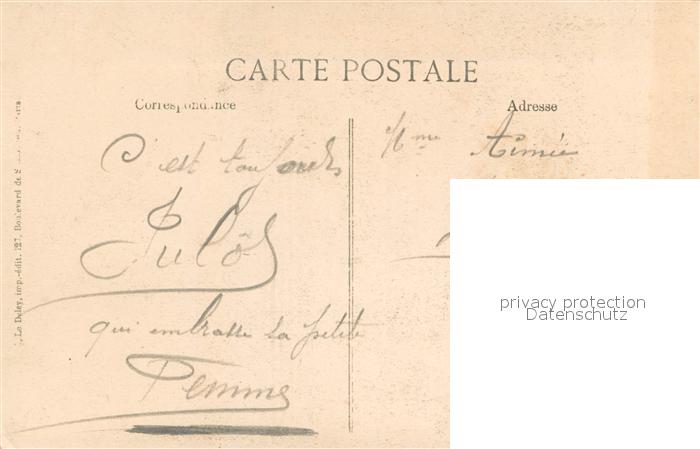 CARTE POSTALE
Correspondance
Adresse
C'est toujours
Julôs
qui embrasse sa petite
Femme
Mme Aimée
privacy protection
Datenschutz
Le Deley, imp.-édit. 127, Boulevard de